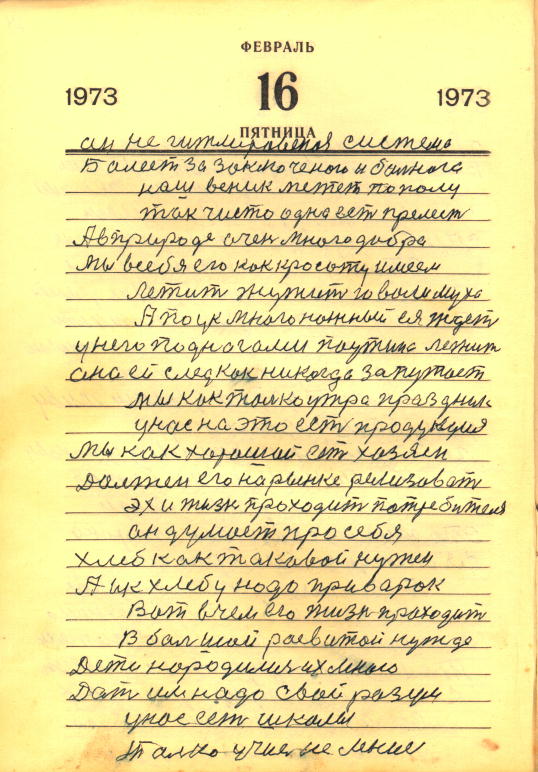 ФЕВРАЛЬ
1973 16 1973
ПЯТНИЦА
система
Балеет за заключеного и балнога
наш веник метет по полу
так чисто одна ест прелест
А в природе очен много добра
мы в себя его как красоту имеем
летит жужит говоли муха
А поук многоножный ея ждет
у него под ногами поутина лежит
она ей след как никогда запутает
мы как толко утра праздник
у нас на это ест продукция
мы как хороший ет хозяен
Должен его на рынке релизоват
эх и жизн проходит потребителя
он думает про себя
хлеб как таковой нужен
А к хлебу надо приварок
Вот в чем его жизн проходит
В балшой развитой нужде
Дети народилис их много
Дат им надо свой разум
у нас ест школы
толко учис не